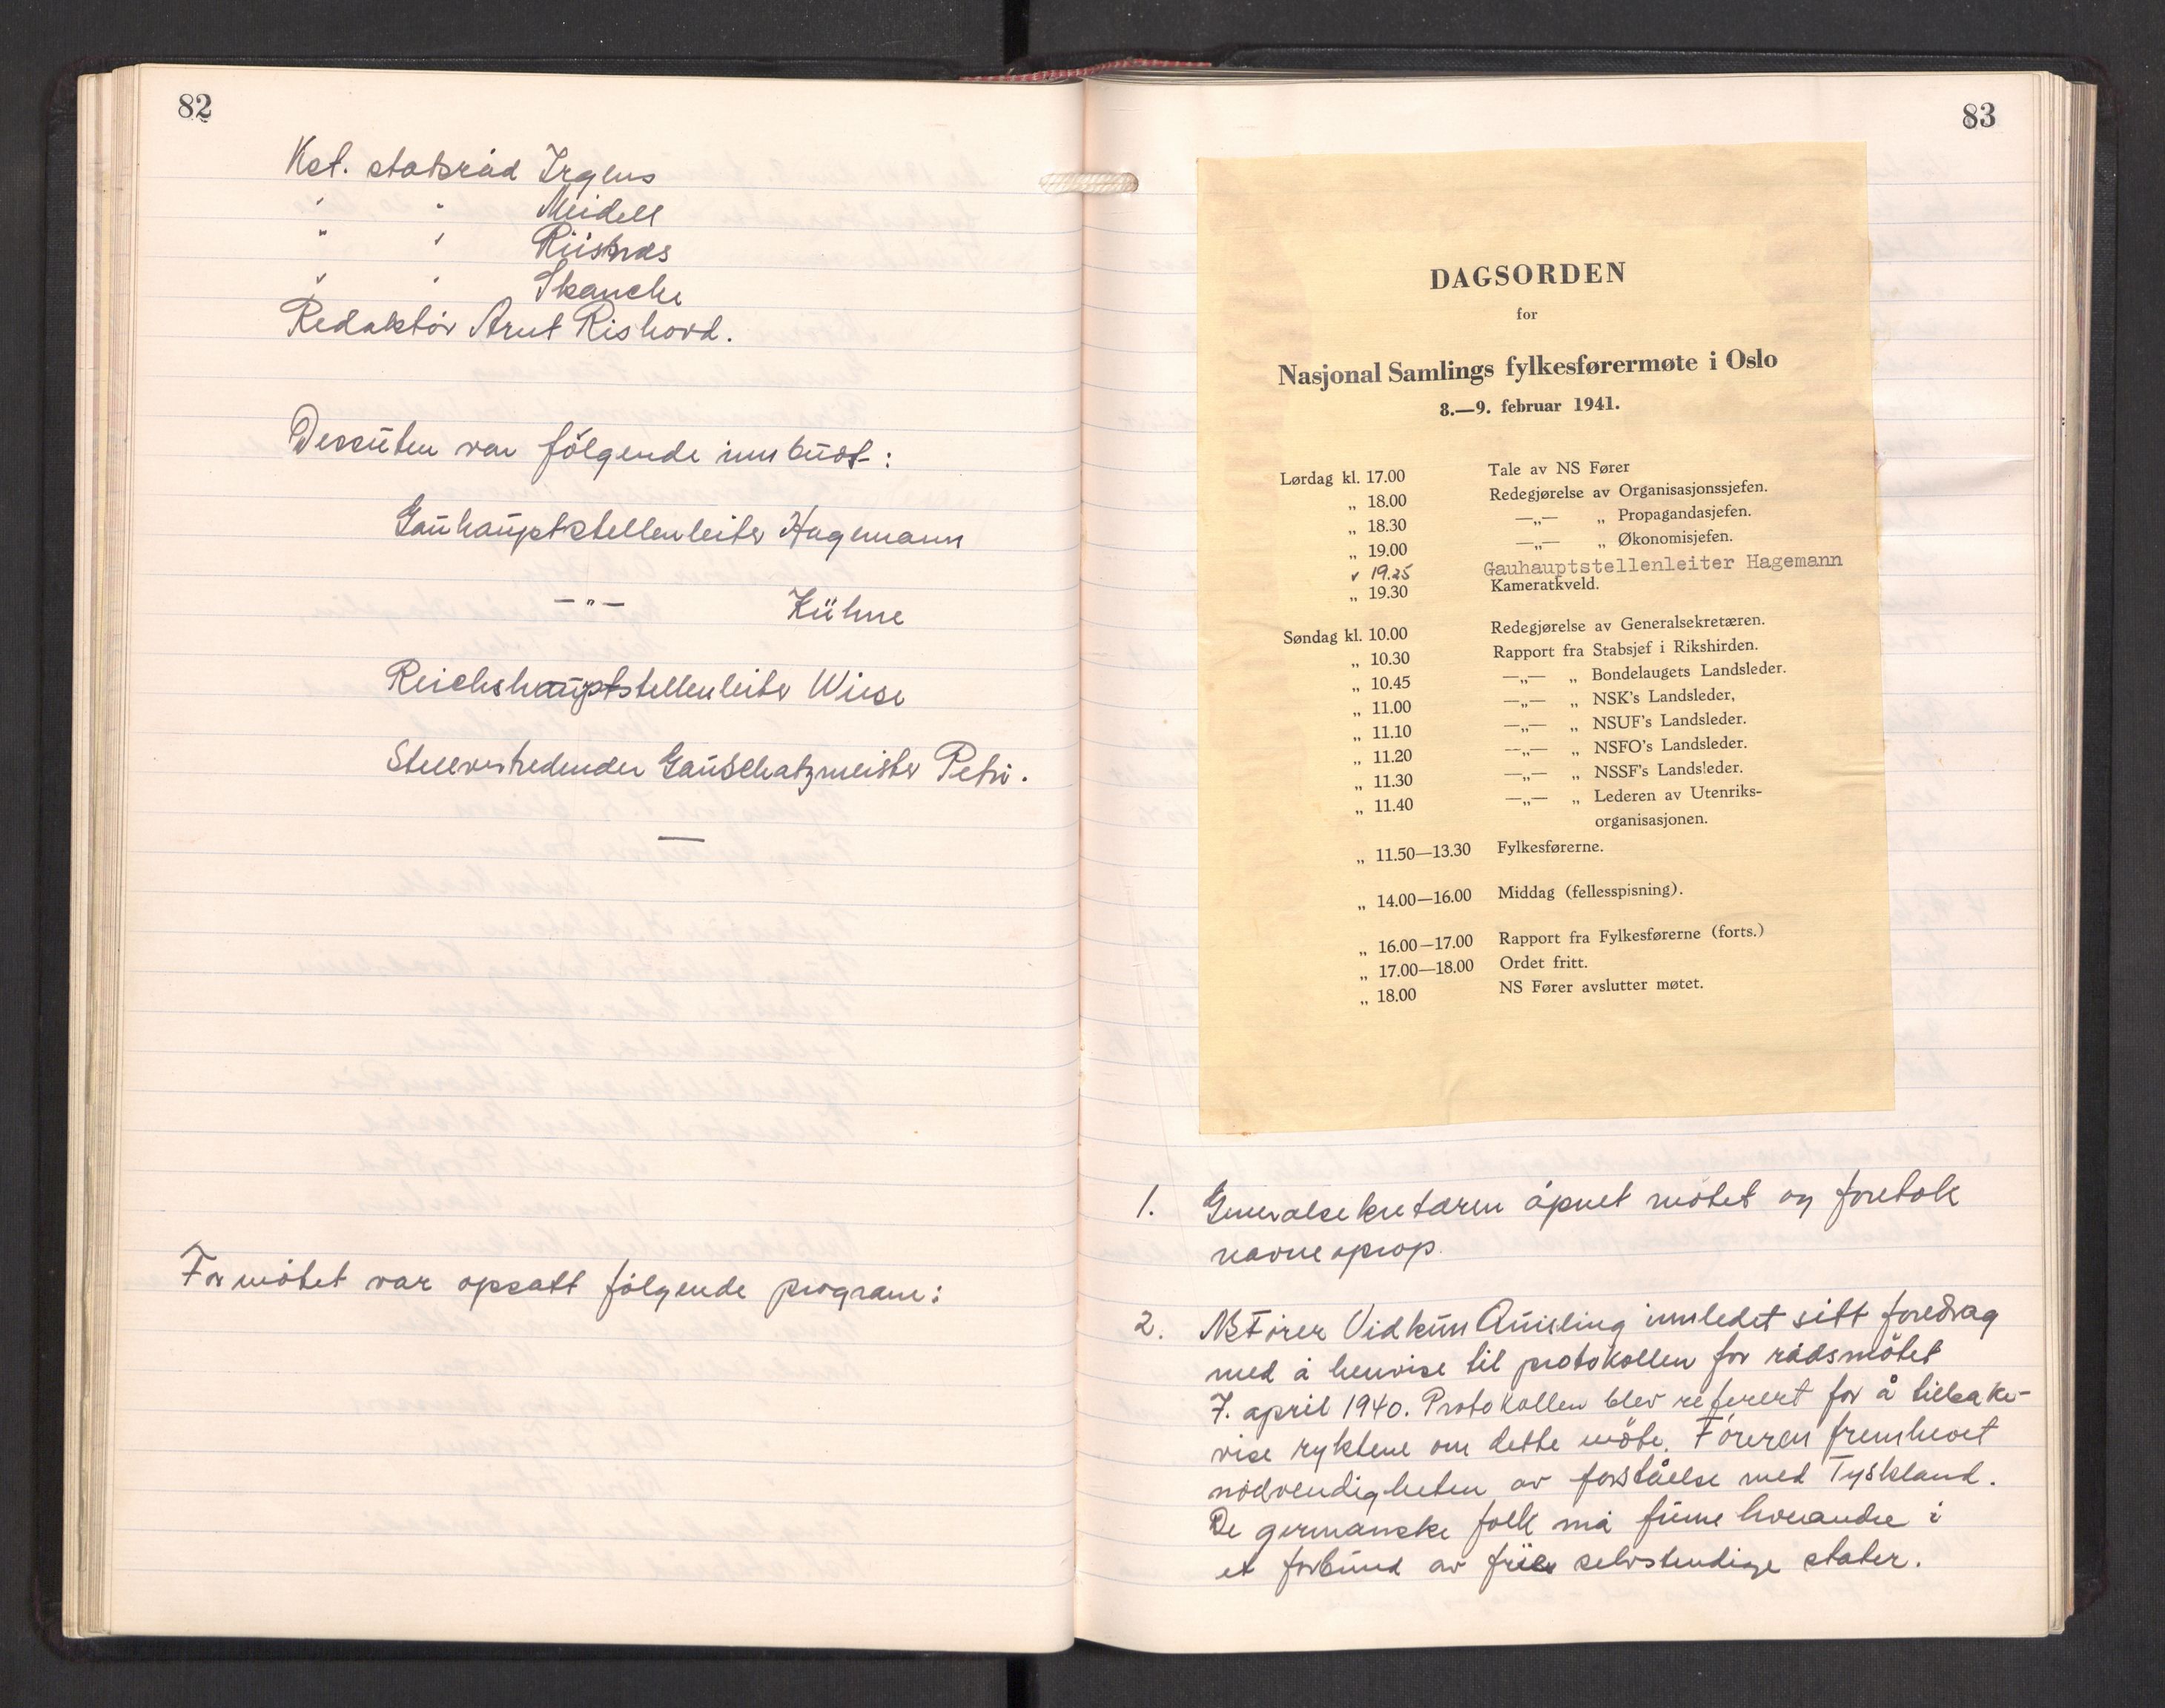 82
Kst. statsråd Irgens
" " Meidell
" " Riisnæs
" " Skancke
Redaktör Arnt Rishovd.
Dessuten var fölgende innbudt:
Gauhauptstellenleiter Hagemann
—"— Kühne
Reichshauptstellenleiter Wiese
Stellvertredender Gauschatzmeister Petri.
—
For mötet var opsatt fölgende program:
83
DAGSORDEN
for
Nasjonal Samlings fylkesførermøte i Oslo
8.—9. februar 1941.
Lørdag kl. 17.00 Tale av NS Fører
„ 18.00 Redegjørelse av Organisasjonssjefen.
„ 18.30 —„— „ Propagandasjefen.
„ 19.00 —„— „ Økonomisjefen.
" 19.25 Gauhauptstellenleiter Hagemann
„ 19.30 Kameratkveld.
Søndag kl. 10.00 Redegjørelse av Generalsekretæren.
„ 10.30 Rapport fra Stabsjef i Rikshirden.
„ 10.45 —„— „ Bondelaugets Landsleder.
„ 11.00 —„— „ NSK's Landsleder,
„ 11.10 —„— „ NSUF's Landsleder.
„ 11.20 —„— „ NSFO's Landsleder.
„ 11.30 —„— „ NSSF's Landsleder.
„ 11.40 —„— „ Lederen av Utenriks-
organisasjonen.
„ 11.50—13.30 Fylkesførerne.
„ 14.00—16.00 Middag (fellesspisning).
„ 16.00—17.00 Rapport fra Fylkesførerne (forts.)
„ 17.00—18.00 Ordet fritt.
„ 18.00 NS Fører avslutter møtet.
1. Generalsekretæren åpnet mötet og foretok
navneoprop.
2. NS Förer Vidkun Quisling innledet sitt foredrag
med å henvise til protokollen for rådsmötet
7. april 1940. Protokollen blev referert for å tilbake-
vise ryktene om dette möte. Föreren fremhevet
nödvendigheten av forståelse med Tyskland.
De germanske folk må finne hverandre i
et forbund av frie selvstendige stater.